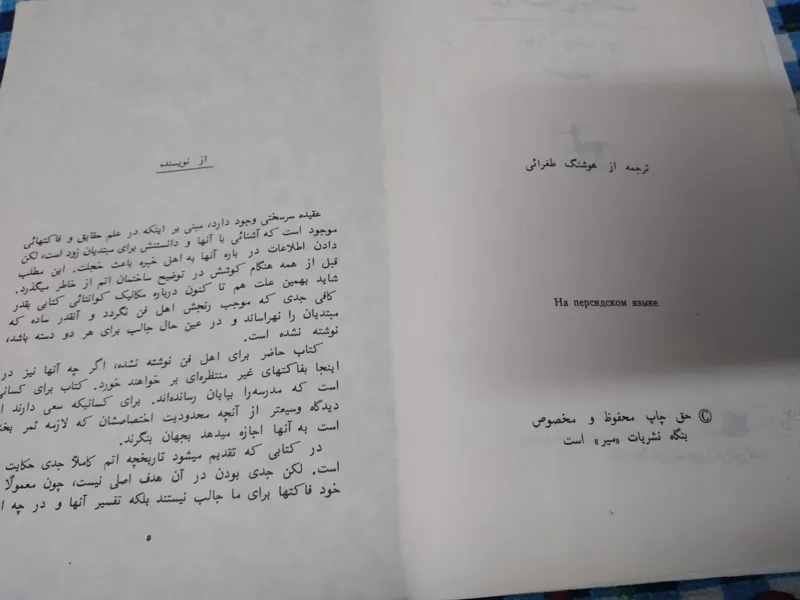 ترجمه از هوشنگ طغرائی
На персидском языке
© حق چاپ محفوظ و مخصوص
بنگاه نشریات «میر» است
از نویسنده
عقیده سرسختی وجود دارد، مبنی بر اینکه در علم حقایق و فاکتهائی
موجود است که آشنائی با آنها و دانستنش برای مبتدیان زود است، لکن
دادن اطلاعات در باره آنها به اهل خبره باعث خجلت. این مطلب
قبل از همه هنگام کوشش در توضیح ساختمان اتم از خاطر میگذرد.
شاید بهمین علت هم تا کنون درباره مکانیک کوانتائی کتابی بقدر
کافی جدی که موجب رنجش اهل فن نگردد و آنقدر ساده که
مبتدیان را نهراساند و در عین حال جالب برای هر دو دسته باشد،
نوشته نشده است.
کتاب حاضر برای اهل فن نوشته نشده، اگر چه آنها نیز در
اینجا بفاکتهای غیر منتظره‌ای بر خواهند خورد. کتاب برای کسانی
است که مدرسه‌را بپایان رسانده‌اند. برای کسانیکه سعی دارند
دیدگاه وسیعتر از آنچه محدودیت اختصاصشان که لازمه ثمر
است به آنها اجازه میدهد بجهان بنگرند.
در کتابی که تقدیم میشود تاریخچه اتم کاملاً جدی حکایت
است. لکن جدی بودن در آن هدف اصلی نیست، چون معمولاً
خود فاکتها برای ما جالب نیستند بلکه تفسیر آنها و در چه
۵